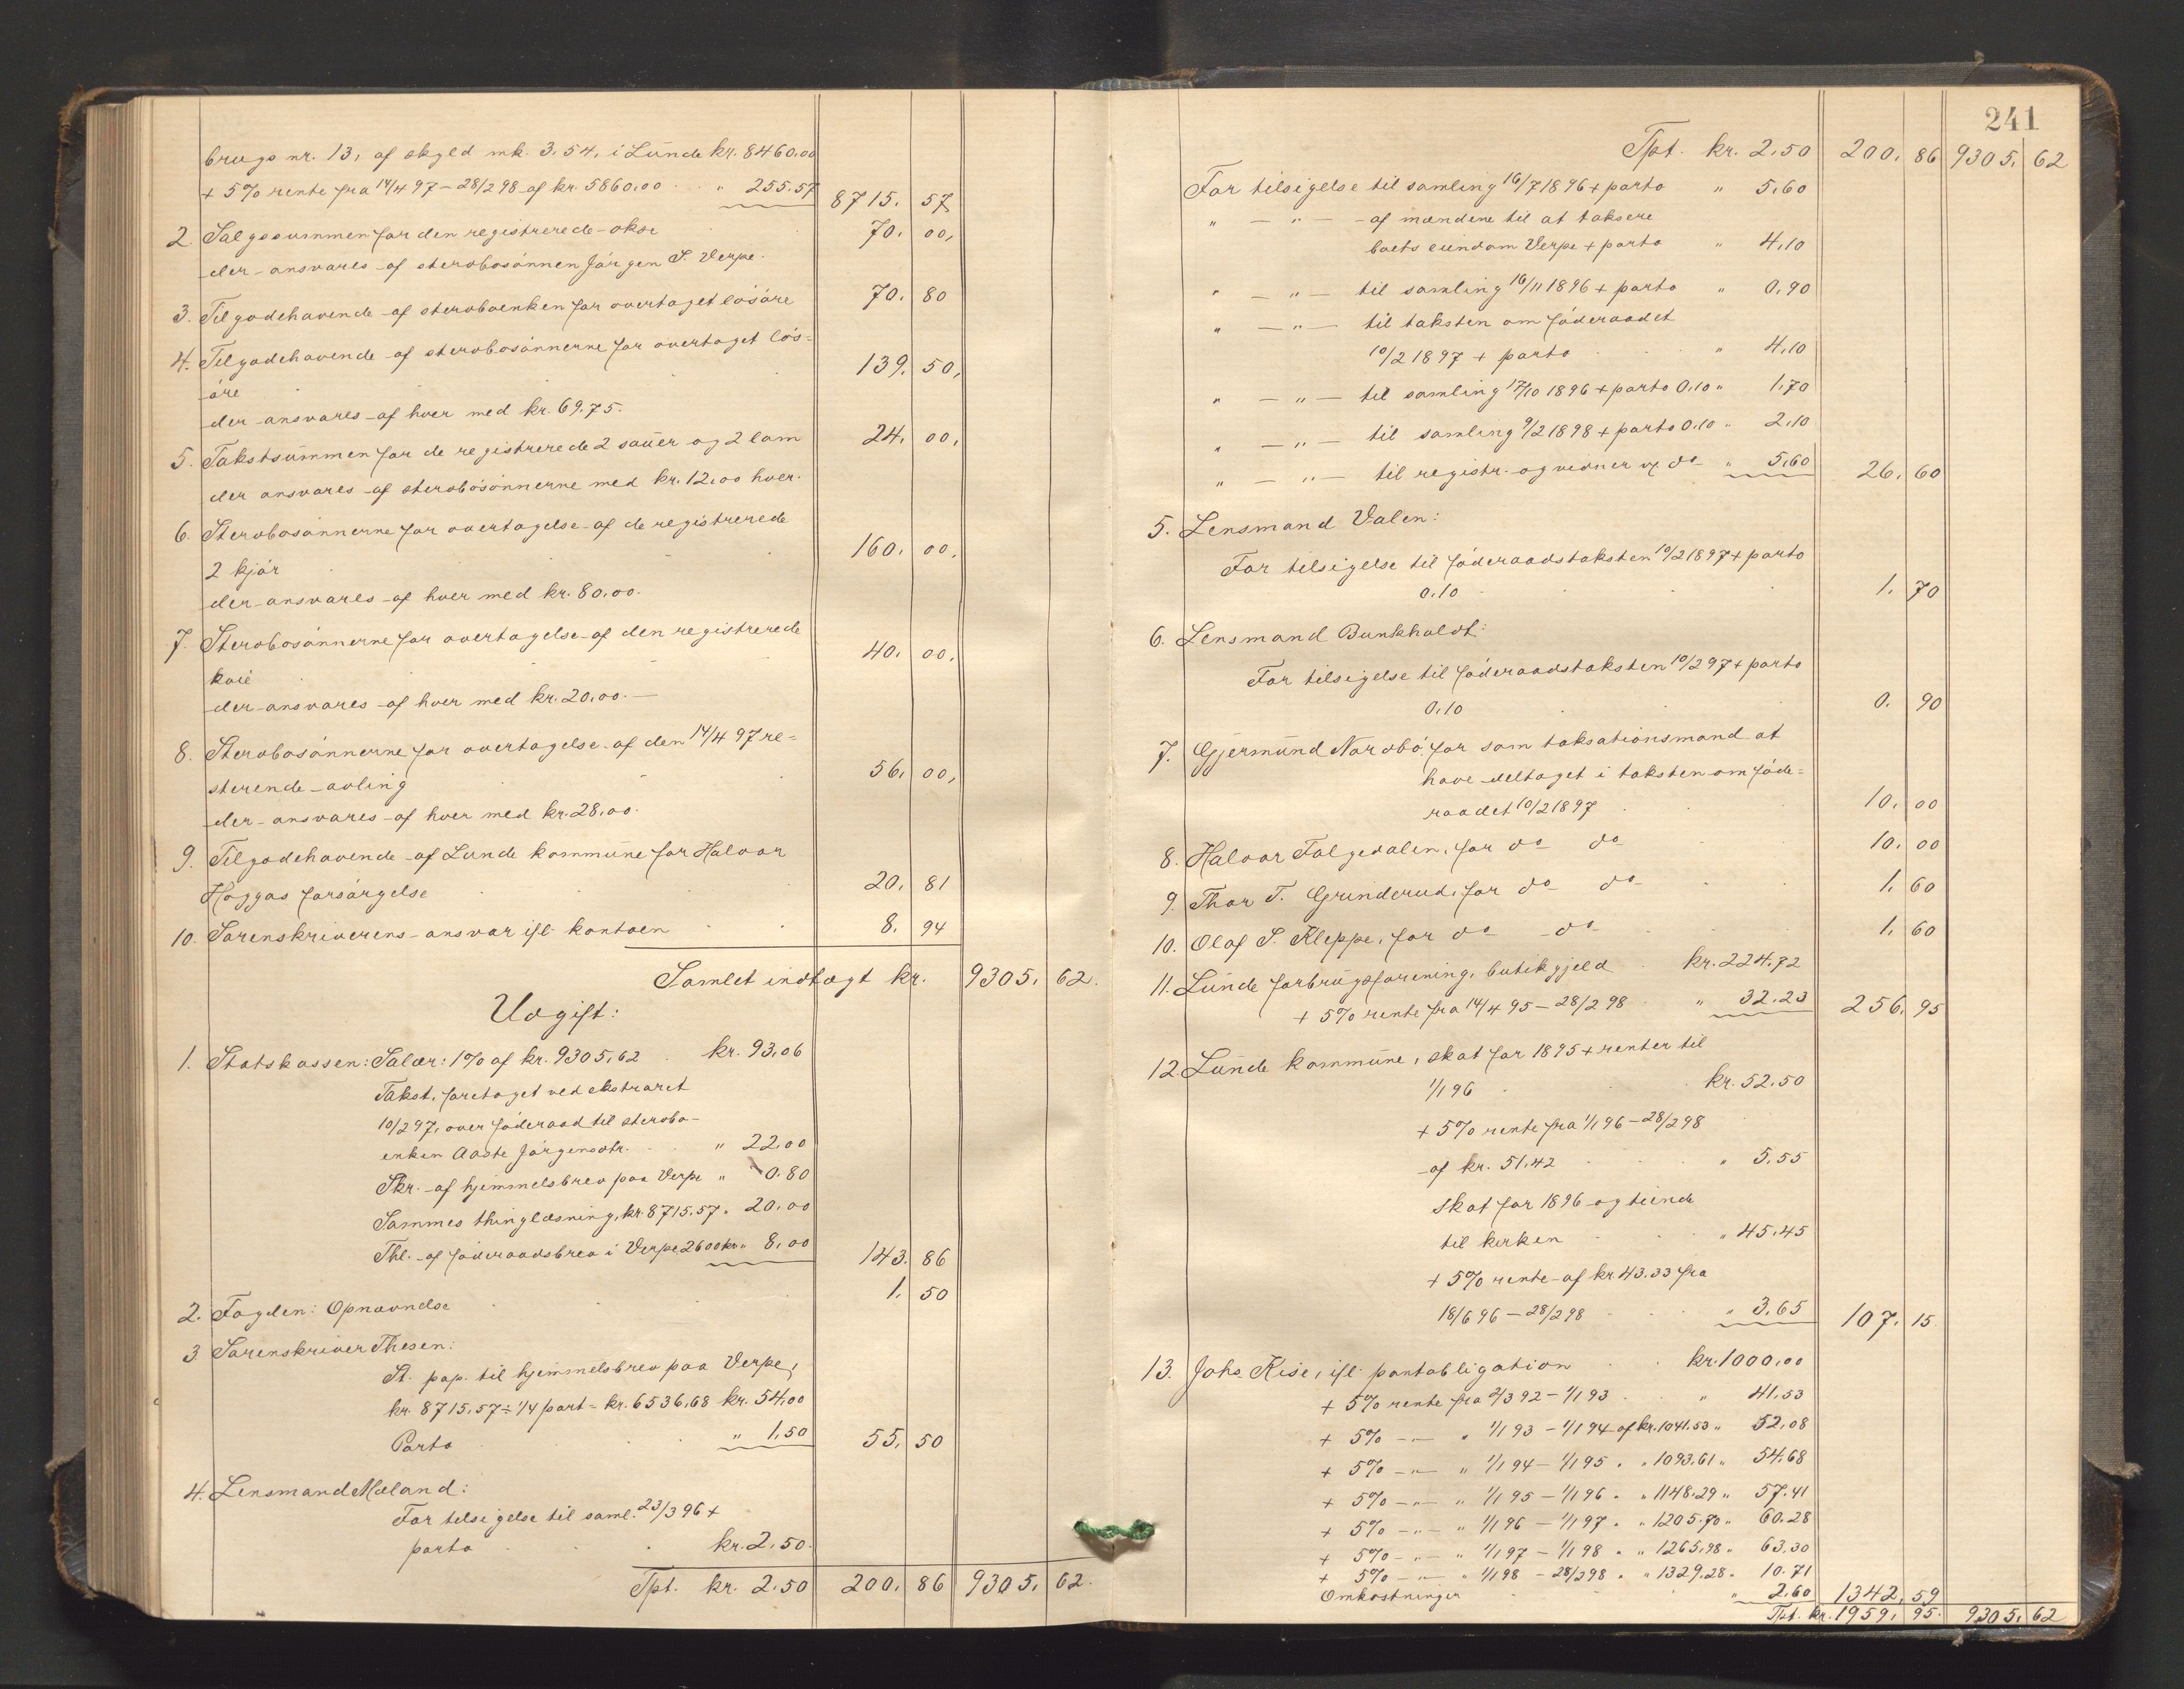 brugs nr. 13, af skyld mk. 3.54, i Lunde kr. 8460.00
+ 5% rente fra 14/4 97 – 28/2 98 af kr. 5860.00 " 255.57 8715. 57
2. Salgssummen for den registrerede okse 70. 00,
der ansvares af sterbosönnen Jörgen S. Verpe.
3. Tilgodehavende af sterboenken for overtaget lösöre 70. 80
4. Tilgodehavende af sterbosönnerne for overtaget lös=
öre 139. 50,
der ansvares af hver med kr. 69.75.
5. Takstsummen for de registrerede 2 sauer og 2 lam 24. 00,
der ansvares af sterbosönnerne med kr. 12.00 hver.
6. Sterbosönnerne for overtagelse af de registrerede
2 kjör 160. 00.
der ansvares af hver med kr. 80.00.
7. Sterbosönnerne for overtagelse af den registrerede
kvie 40. 00.
der ansvares af hver med kr. 20.00. —
8. Sterbosönnerne for overtagelse af den 14/4 97 re=
sterende avling 56. 00,
der ansvares af hver med kr. 28.00.
9. Tilgodehavende af Lunde kommune for Halvor
Haggas forsörgelse 20. 81
10. Sorenskriverens ansvar ifl. kontoen 8. 94
Samlet indtægt kr. 9305. 62.
Udgift:
1. Statskassen: Salær: 1% af kr. 9305.62 kr. 93.06
Takst, foretaget ved ekstraret
10/2 97, over föderaad til sterbo-
enken Aaste Jörgensdtr. " 22.00
Skr. af hjemmelsbrev paa Verpe " 0.80
Sammes thinglæsning, kr. 8715.57 " 20.00
Thl. af föderaadsbrev i Verpe 2600 kr. " 8.00 143. 86
2. Fogden: Opnævndse 1. 50
3. Sorenskriver Thesen:
St. pap. til hjemmelsbrev paa Verpe,
kr. 8715.57 ÷ 1/4 part = kr. 6536.68 kr. 54.00
Porto " 1.50 55. 50
4. Lensmand Mæland:
For tilsigelse til saml. 23/3 96 +
porto kr. 2.50.
Tpt. kr. 2.50 200. 86 9305. 62.
241
Tpt. kr. 2.50 200. 86 9305. 62
For tilsigelse til samling 16/7 1896 + porto " 5.60
" — " — af mændene til at taksere
boets eiendom Verpe + porto " 4.10
" — " — til samling 16/11 1896 + porto " 0.90
" — " — til taksten om föderaadet
10/2 1897 + porto " 4.10
" — " — til samling 17/10 1896 + porto 0.10 " 1.70
" — " — til samling 9/2 1898 + porto 0.10 " 2.10
" — " — til registr. og vidner v. do " 5.60 26. 60
5. Lensmand Valen:
For tilsigelse til föderaadstaksten 10/2 1897 + porto
0.10 1. 70
6. Lensmand Bunkholdt:
For tilsigelse til föderaadstaksten 10/2 97 + porto
0.10 0. 90
7. Gjermund Nordbö, for som taksationsmand at
have deltaget i taksten om föde=
raadet 10/2 1897 10. 00
8. Halvor Folgedalen, for do do 10. 00
9. Thor T. Grinderud, for do do 1. 60
10. Olaf S. Kleppe, for do do 1. 60
11. Lunde forbrugsforening, butikgjeld kr. 224.72
+ 5% rente fra 14/4 95 – 28/2 98 " 32.23 256. 95
12. Lunde kommune, skat for 1895 + renter til
1/1 96 kr. 52.50
+ 5% rente fra 1/1 96 – 28/2 98
af kr. 51.42 " 5.55
Skat for 1896 og tiende
til kirken " 45.45
+ 5% rente af kr. 43.33 fra
18/6 96 – 28/2 98 " 3.65 107. 15
13. Johs. Kise, ifl. pantobligation kr. 1000.00
+ 5% rente fra 2/3 92 – 1/1 93 " 41.53
+ 5% — " — " 1/1 93 – 1/1 94 af kr. 1041.53 " 52.08
+ 5% — " — " 1/1 94 – 1/1 95 " " 1093.61 " 54.68
+ 5% — " — " 1/1 95 – 1/1 96 " " 1148.29 " 57.41
+ 5% — " — " 1/1 96 – 1/1 97 " " 1205.70 " 60.28
+ 5% — " — " 1/1 97 – 1/1 98 " " 1265.98 " 63.30
+ 5% — " — " 1/1 98 – 28/2 98 " " 1329.28 " 10.71
Omkostninger " 2.60 1342. 59
Tpt. kr. 1959. 95. 9305. 62